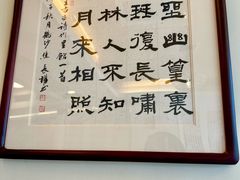 坐幽篁裏
琴復長嘯
林人不知
月來相照
詩竹里館一首
秋月